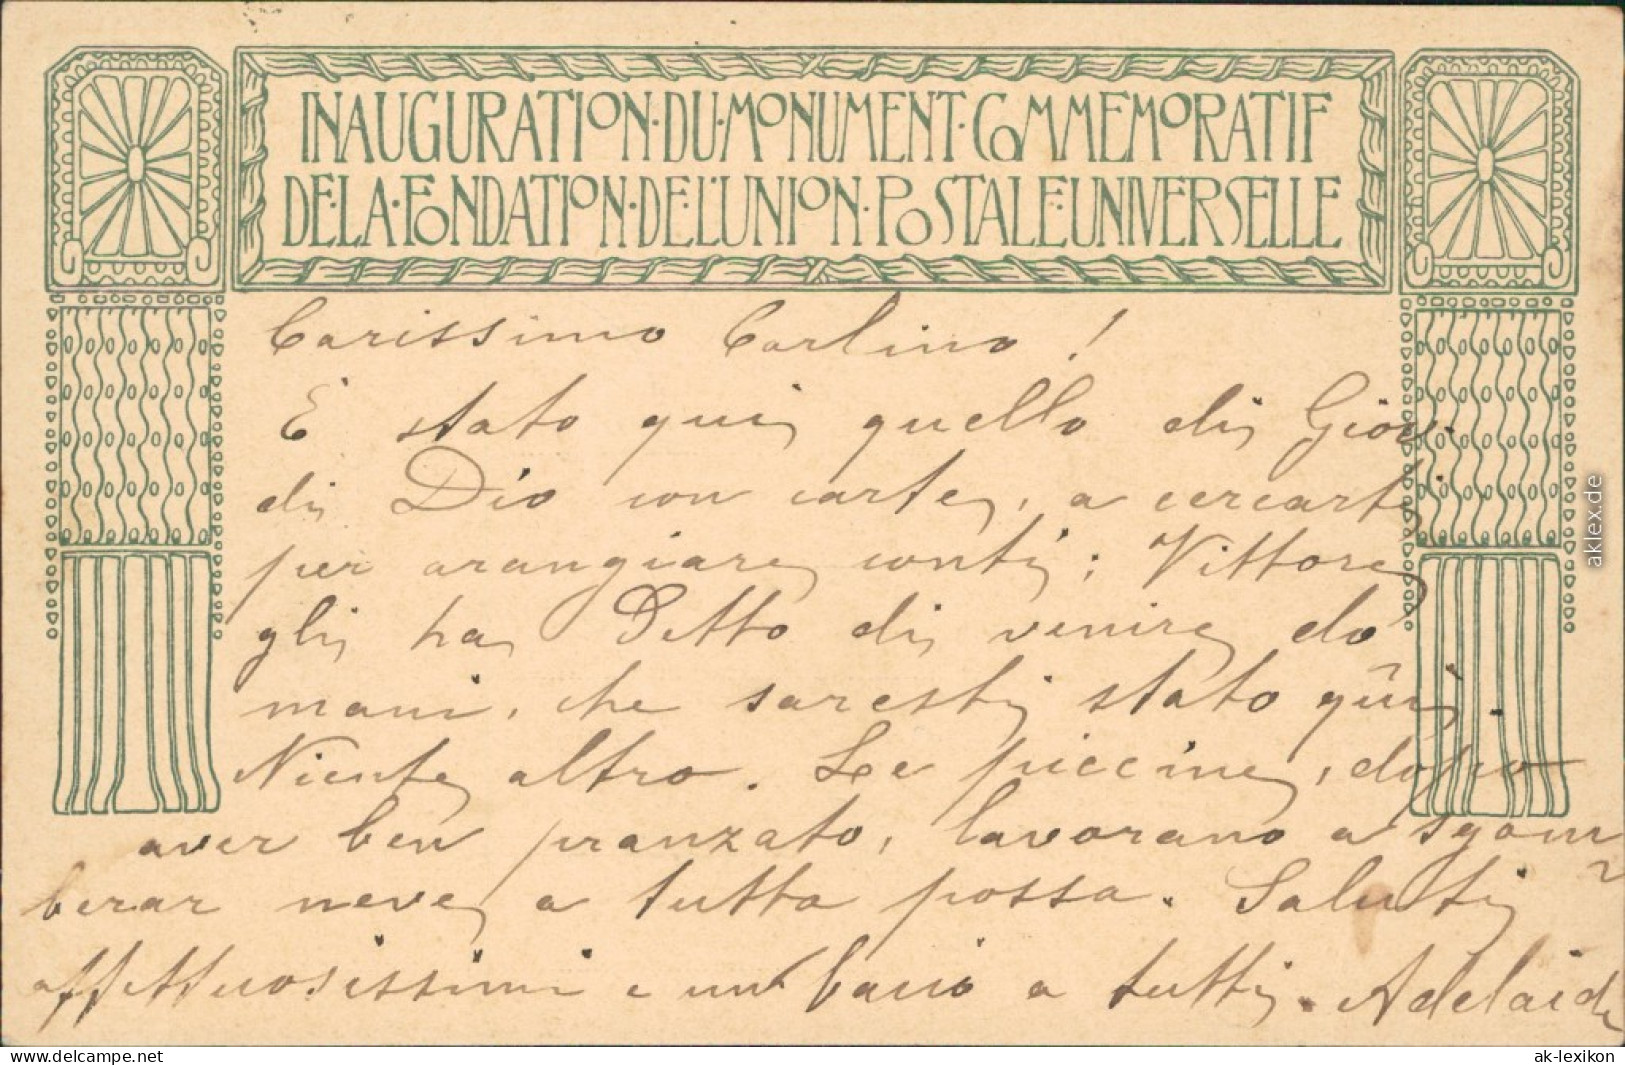 INAUGURATION·DU·MONUMENT·COMMEMORATIF
DE·LA·FONDATION·DE·L'UNION·POSTALE·UNIVERSELLE
Carissimo Carlino!
È stato qui quello di Giov.
di Dio con carte, a cercarti
per arangiare conti; Vittore
gli ha detto di venire do
mani, che saresti stato qui.
Niente altro. Le piccine, dopo
aver ben pranzato, lavorano a sgom
berar neve a tutta possa. Saluti
affettuosissimi e un bacio a tutti. Adelaide
aklex.de
www.delcampe.net
ak-lexikon